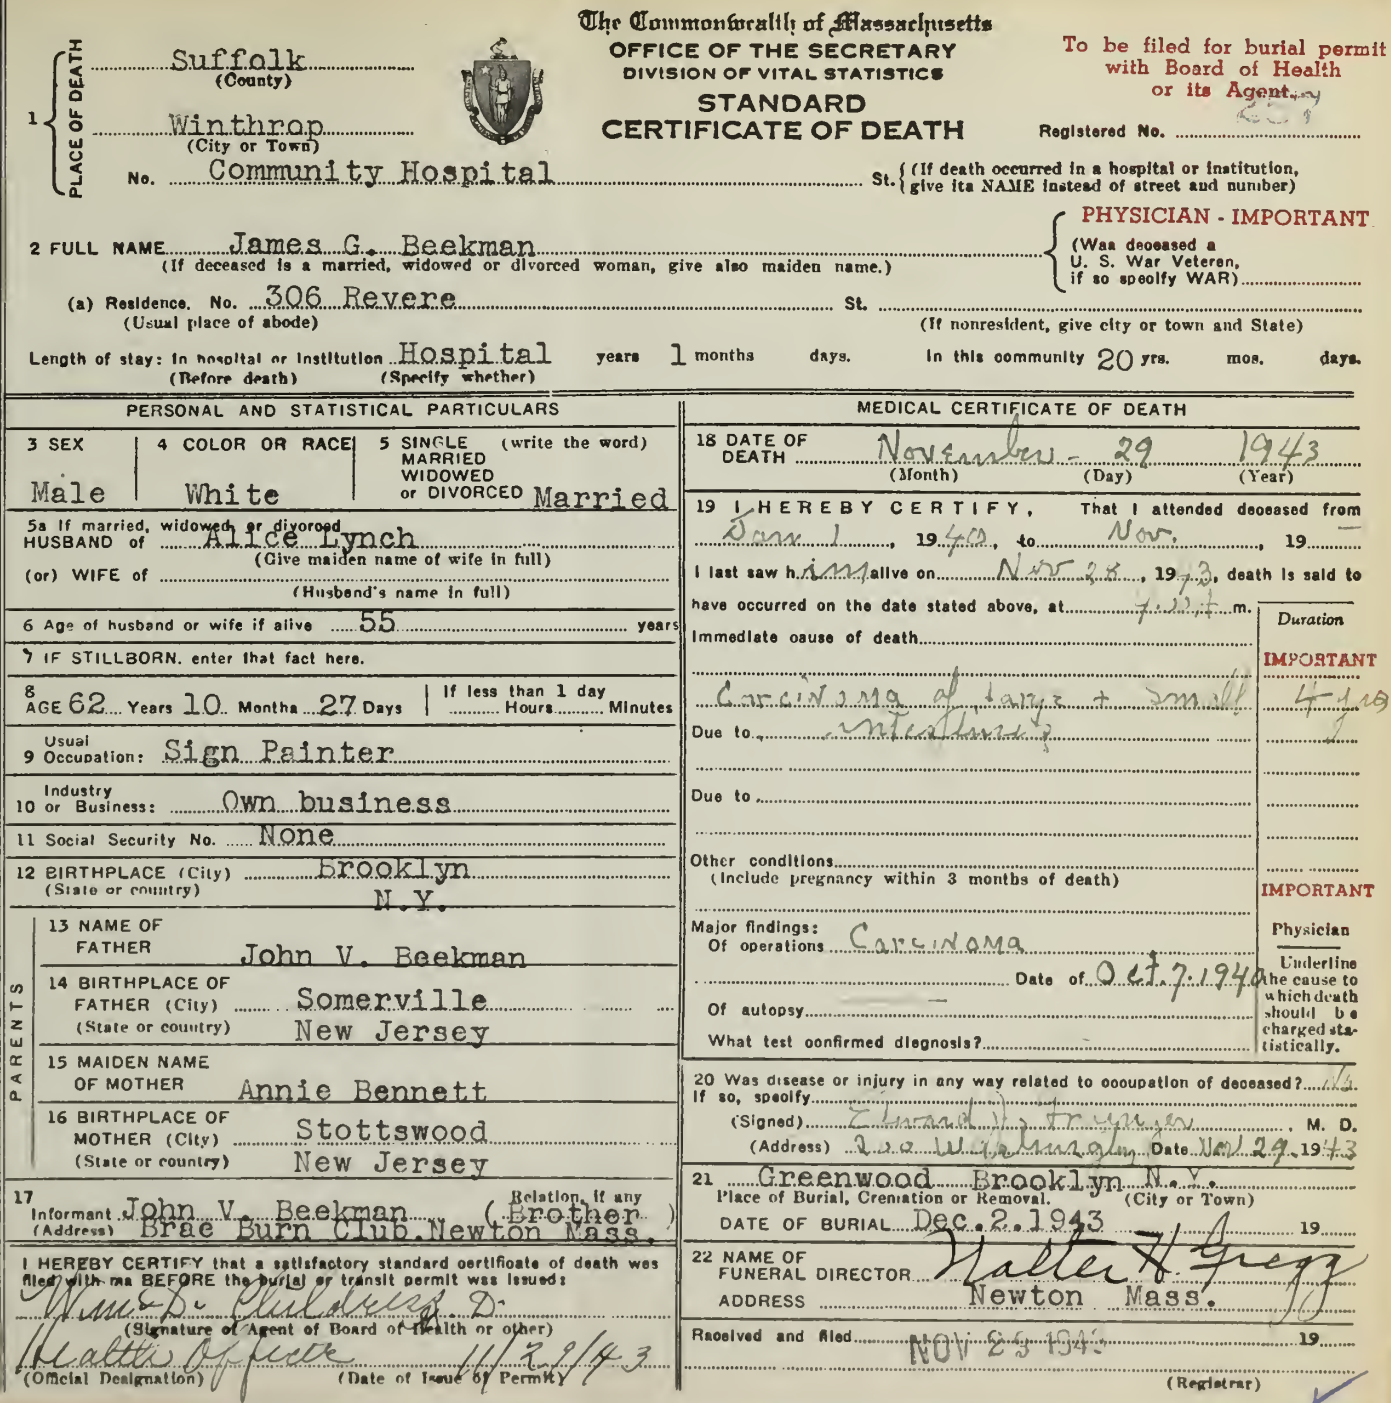 The Commonwealth of Massachusetts
OFFICE OF THE SECRETARY
DIVISION OF VITAL STATISTICS
STANDARD
CERTIFICATE OF DEATH
To be filed for burial permit
with Board of Health
or its Agent.
Registered No.
1 PLACE OF DEATH
Suffolk
(County)
Winthrop
(City or Town)
No. Community Hospital St. { (If death occurred in a hospital or institution,
give its NAME instead of street and number)
PHYSICIAN - IMPORTANT
2 FULL NAME James G. Beekman
(If deceased is a married, widowed or divorced woman, give also maiden name.)
(Was deceased a
U. S. War Veteran,
if so specify WAR)
(a) Residence. No. 306 Revere St.
(Usual place of abode) (If nonresident, give city or town and State)
Length of stay: In hospital or institution Hospital years 1 months days. In this community 20 yrs. mos. days.
(Before death) (Specify whether)
PERSONAL AND STATISTICAL PARTICULARS
3 SEX
Male
4 COLOR OR RACE
White
5 SINGLE (write the word)
MARRIED
WIDOWED
or DIVORCED Married
5a If married, widowed or divorced
HUSBAND of Alice Lynch
(Give maiden name of wife in full)
(or) WIFE of
(Husband's name in full)
6 Age of husband or wife if alive 55 years
7 IF STILLBORN. enter that fact here.
8 AGE 62 Years 10 Months 27 Days If less than 1 day Hours Minutes
9 Usual Occupation: Sign Painter
10 Industry or Business: Own business
11 Social Security No. None
12 BIRTHPLACE (City) Brooklyn
(State or country) N.Y.
PARENTS
13 NAME OF
FATHER John V. Beekman
14 BIRTHPLACE OF
FATHER (City) Somerville
(State or country) New Jersey
15 MAIDEN NAME
OF MOTHER Annie Bennett
16 BIRTHPLACE OF
MOTHER (City) Stottswood
(State or country) New Jersey
17 Informant John V. Beekman (Relation, if any Brother)
(Address) Brae Burn Club.Newton Mass.
I HEREBY CERTIFY that a satisfactory standard certificate of death was
filed with me BEFORE the burial or transit permit was issued:
(Signature of Agent of Board of Health or other)
Health Officer 11/29/43
(Official Designation) (Date of Issue of Permit)
MEDICAL CERTIFICATE OF DEATH
18 DATE OF
DEATH November - 29 1943
(Month) (Day) (Year)
19 I HEREBY CERTIFY, That I attended deceased from
Jan 1, 1940, to Nov., 19 -
I last saw him alive on Nov 28, 1943, death is said to
have occurred on the date stated above, at m.
Immediate cause of death
Duration
IMPORTANT
Carcinoma of large + small 4 yrs
Due to intestines
Due to
Other conditions
(Include pregnancy within 3 months of death)
IMPORTANT
Major findings:
Of operations Carcinoma
Date of Oct. 7. 1940
Of autopsy —
What test confirmed diagnosis?
Physician
Underline
the cause to
which death
should be
charged sta-
tistically.
20 Was disease or injury in any way related to occupation of deceased? No.
If so, specify
(Signed) Edward , M. D.
(Address) 200 Washington Date Nov 29. 1943
21 Greenwood Brooklyn N.Y.
Place of Burial, Cremation or Removal. (City or Town)
DATE OF BURIAL Dec.2.1943 19
22 NAME OF
FUNERAL DIRECTOR Walter H. Gregg
ADDRESS Newton Mass.
Received and filed NOV 29 1943 19
(Registrar)